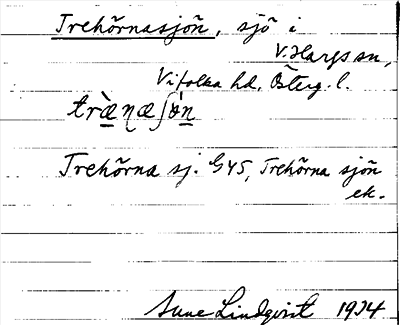 Trehörnasjön, sjö i
V. Hargs sn,
Vifolka hd. Österg. l.
træ̀ɳæʃøn
Trehörna sj. G45, Trehörna sjön
ek.
Sune Lindqvist 1934